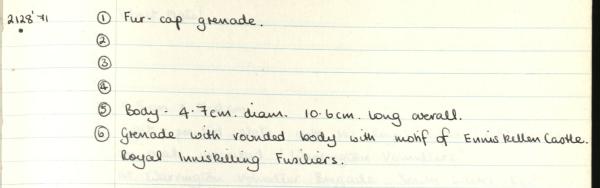 2128'71 ① Fur-cap grenade.
②
③
④
⑤ Body - 4.7cm. diam. 10.6cm. long overall.
⑥ Grenade with rounded body with motif of Enniskillen Castle.
Royal Inniskilling Fusiliers.